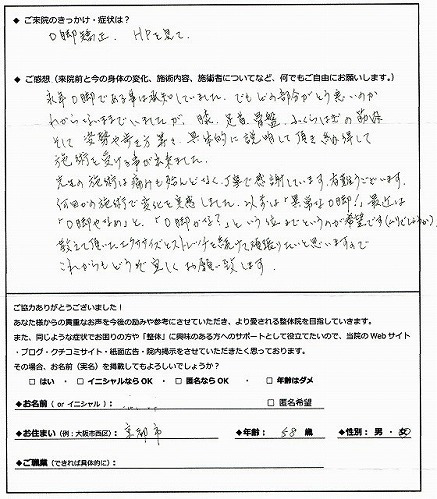 ◆ ご来院のきっかけ・症状は?
O脚矯正、HPを見て
◆ ご感想(来院前と今の身体の変化、施術内容、施術者についてなど、何でもご自由にお願いします。)
永年O脚である事は承知していました。でもどの部分がどう悪いのか
わからないままでいましたが、膝、足首、骨盤、ふくらはぎの関係
そして姿勢や歩き方等を具体的に説明して頂き納得して
施術を受ける事が出来ました。
先生の施術は痛みも殆んどなく、丁寧で感謝しています。有難うございます。
何回かの施術で変化を実感しました。以前は「異常なO脚!」最近は
「O脚やなぁ」と。「O脚かな?」という位までというのが希望です
教えて頂いたエクササイズとストレッチを続けて頑張りたいと思いますので
これからもどうぞ宜しくお願い致します。
ご協力ありがとうございました!
あなた様からの貴重なお声を今後の励みや参考にさせていただき、より愛される整体院を目指していきます。
また、同じような症状でお困りの方や「整体」に興味のある方へのサポートとして役立てたいので、当院のWebサイト
・ブログ・クチコミサイト・紙面広告・院内掲示をさせていただきたく思っております。
その場合、お名前(実名)を掲載してもよろしいでしょうか?
□ はい ・ □ イニシャルならOK ・ □ 匿名ならOK ・ □ 年齢はダメ
◆お名前( or イニシャル): □ 匿名希望
◆お住まい(例:大阪市西区): 京都市 ◆年齢: 58 歳 ◆性別: 男 ・ 女
◆ご職業(できれば具体的に):